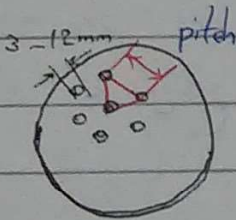 3-12mm
pitch